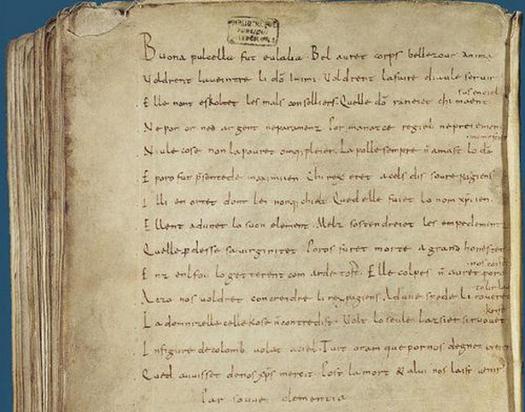 Buona pulcella fut eulalia. Bel auret corps bellezour anima
Voldrent la veintre li dō Inimi. Voldrent la faire diaule servir
Elle nont eskoltet les mals conselliers. Quelle dō raneiet chi maent
sus en ciel
Ne por or ned argent ne paramenz. Por manatce regiel ne preiemen
Niule cose non la pouret omq; pleier. La polle sempre ñ amast lo dō
E poro fut p̄sentede maximiien. Chi rex eret a cels dis soure pagiens
Il li enortet dont lei nonq; chielt. Qued elle fuiet lo nom xp̄iien.
Ellent adunet lo suon element. Melz sostendreiet les empedementz
Quelle p̄desse sa virginitet. Poros furet morte a grand honestet
Enz enl fou lo getterent com arde tost. Elle colpes ñ auret poro
nos coist
Aczo nos voldret concreidre li rex pagiens. Ad une spede li roveret
tolir lo
La domnizelle celle kose ñ contredist. Volt lo seule lazsier si ruovet
krist
In figure de colomb volat a ciel. Tuit oram que por nos degnet preier
Qued auuisset de nos xp̄s mercit. Post la mort & a lui nos laist venir
Par souue clementia